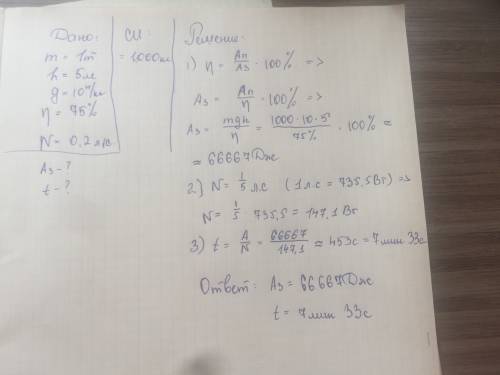 Дано:
m = 1т
h = 5м
g = 10 м/кг
η = 75%
N = 0,2 л.с.
Aз - ?
t - ?
СИ:
= 1000кг
Решение:
1) η = Aп/Aз · 100% =>
Aз = Aп/η · 100% =>
Aз = mgh/η = 1000·10·5/75% · 100% ≈
≈ 66667 Дж
2) N = 1/5 л.с (1 л.с = 735,5Вт) =>
N = 1/5 · 735,5 = 147,1 Вт
3) t = A/N = 66667/147,1 ≈ 453с = 7 мин 33с
Ответ: Aз = 66667Дж
t = 7 мин 33с